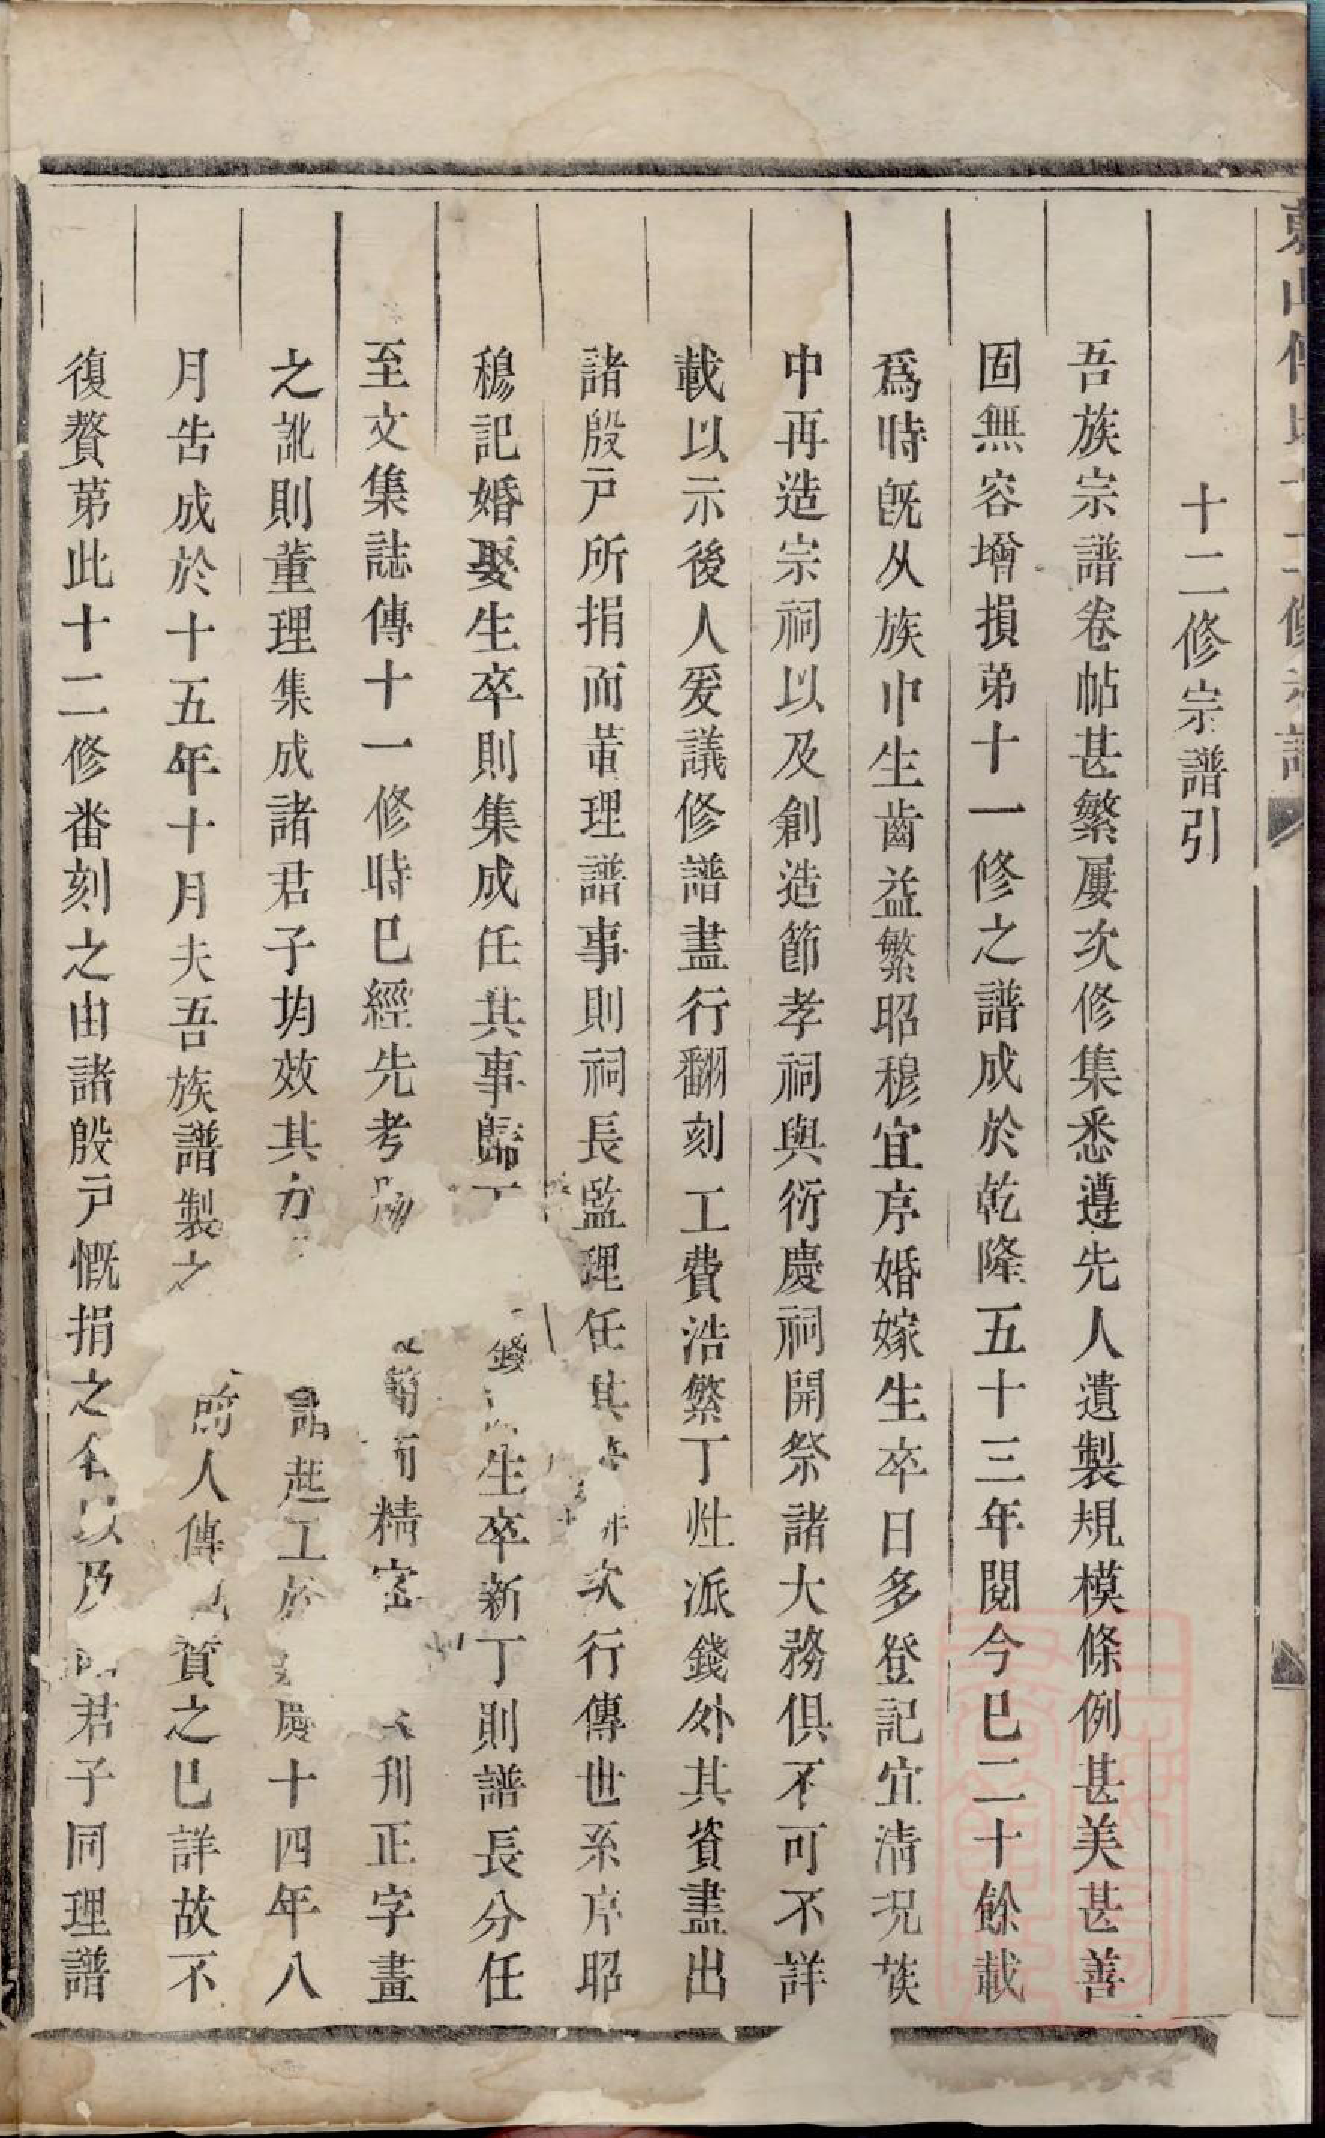 十二修宗譜引
吾族宗譜卷帖甚繁屢次修集悉遵先人遺製規模條例甚美甚善
固無容增損苐十一修之譜成於乾隆五十三年閱今巳二十餘載
爲時旣从族中生齒益繁昭穆宜序婚嫁生卒日多登記宜淸況族
中再造宗祠以及創造節孝祠與衍慶祠開祭諸大務俱不可不詳
載以示後人爰議修譜盡行翻刻工費浩繁丁灶派錢外其資盡出
諸殷戸所捐而董理譜事則祠長監理任其次行傳世系序昭
穆記婚娶生卒則集成任其事歸錢生卒新丁則譜長分任
至文集誌傳十一修時巳經先考而精密刋正字畫
之訛則董理集成諸君子均效其力起工於慶十四年八
月告成於十五年十月夫吾族譜製之前人傳贊之巳詳故不
復贅苐此十二修畨刻之由諸殷戸慨捐之以及君子同理譜